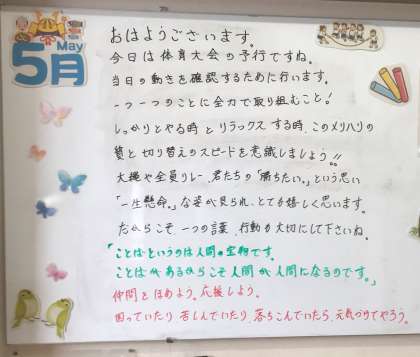 5月
May
おはようございます。
今日は体育大会の予行ですね。
当日の動きを確認するために行います。
一つ一つのことに全力で取り組むこと!
しっかりとやる時とリラックスする時、このメリハリの
質と切り替えのスピードを意識しましょう!!
大縄や全員リレー、君たちの「勝ちたい。」という思い
「一生懸命。」な姿が見られ、とても嬉しく思います。
だからこそ一つの言葉、行動も大切にして下さいね。
「ことばというのは人間の宝物です。
ことばがあるからこそ人間が人間になるのです。」
仲間をほめよう。応援しよう。
困っていたり苦しんでいたり、落ちこんでいたら、元気づけてやろう。